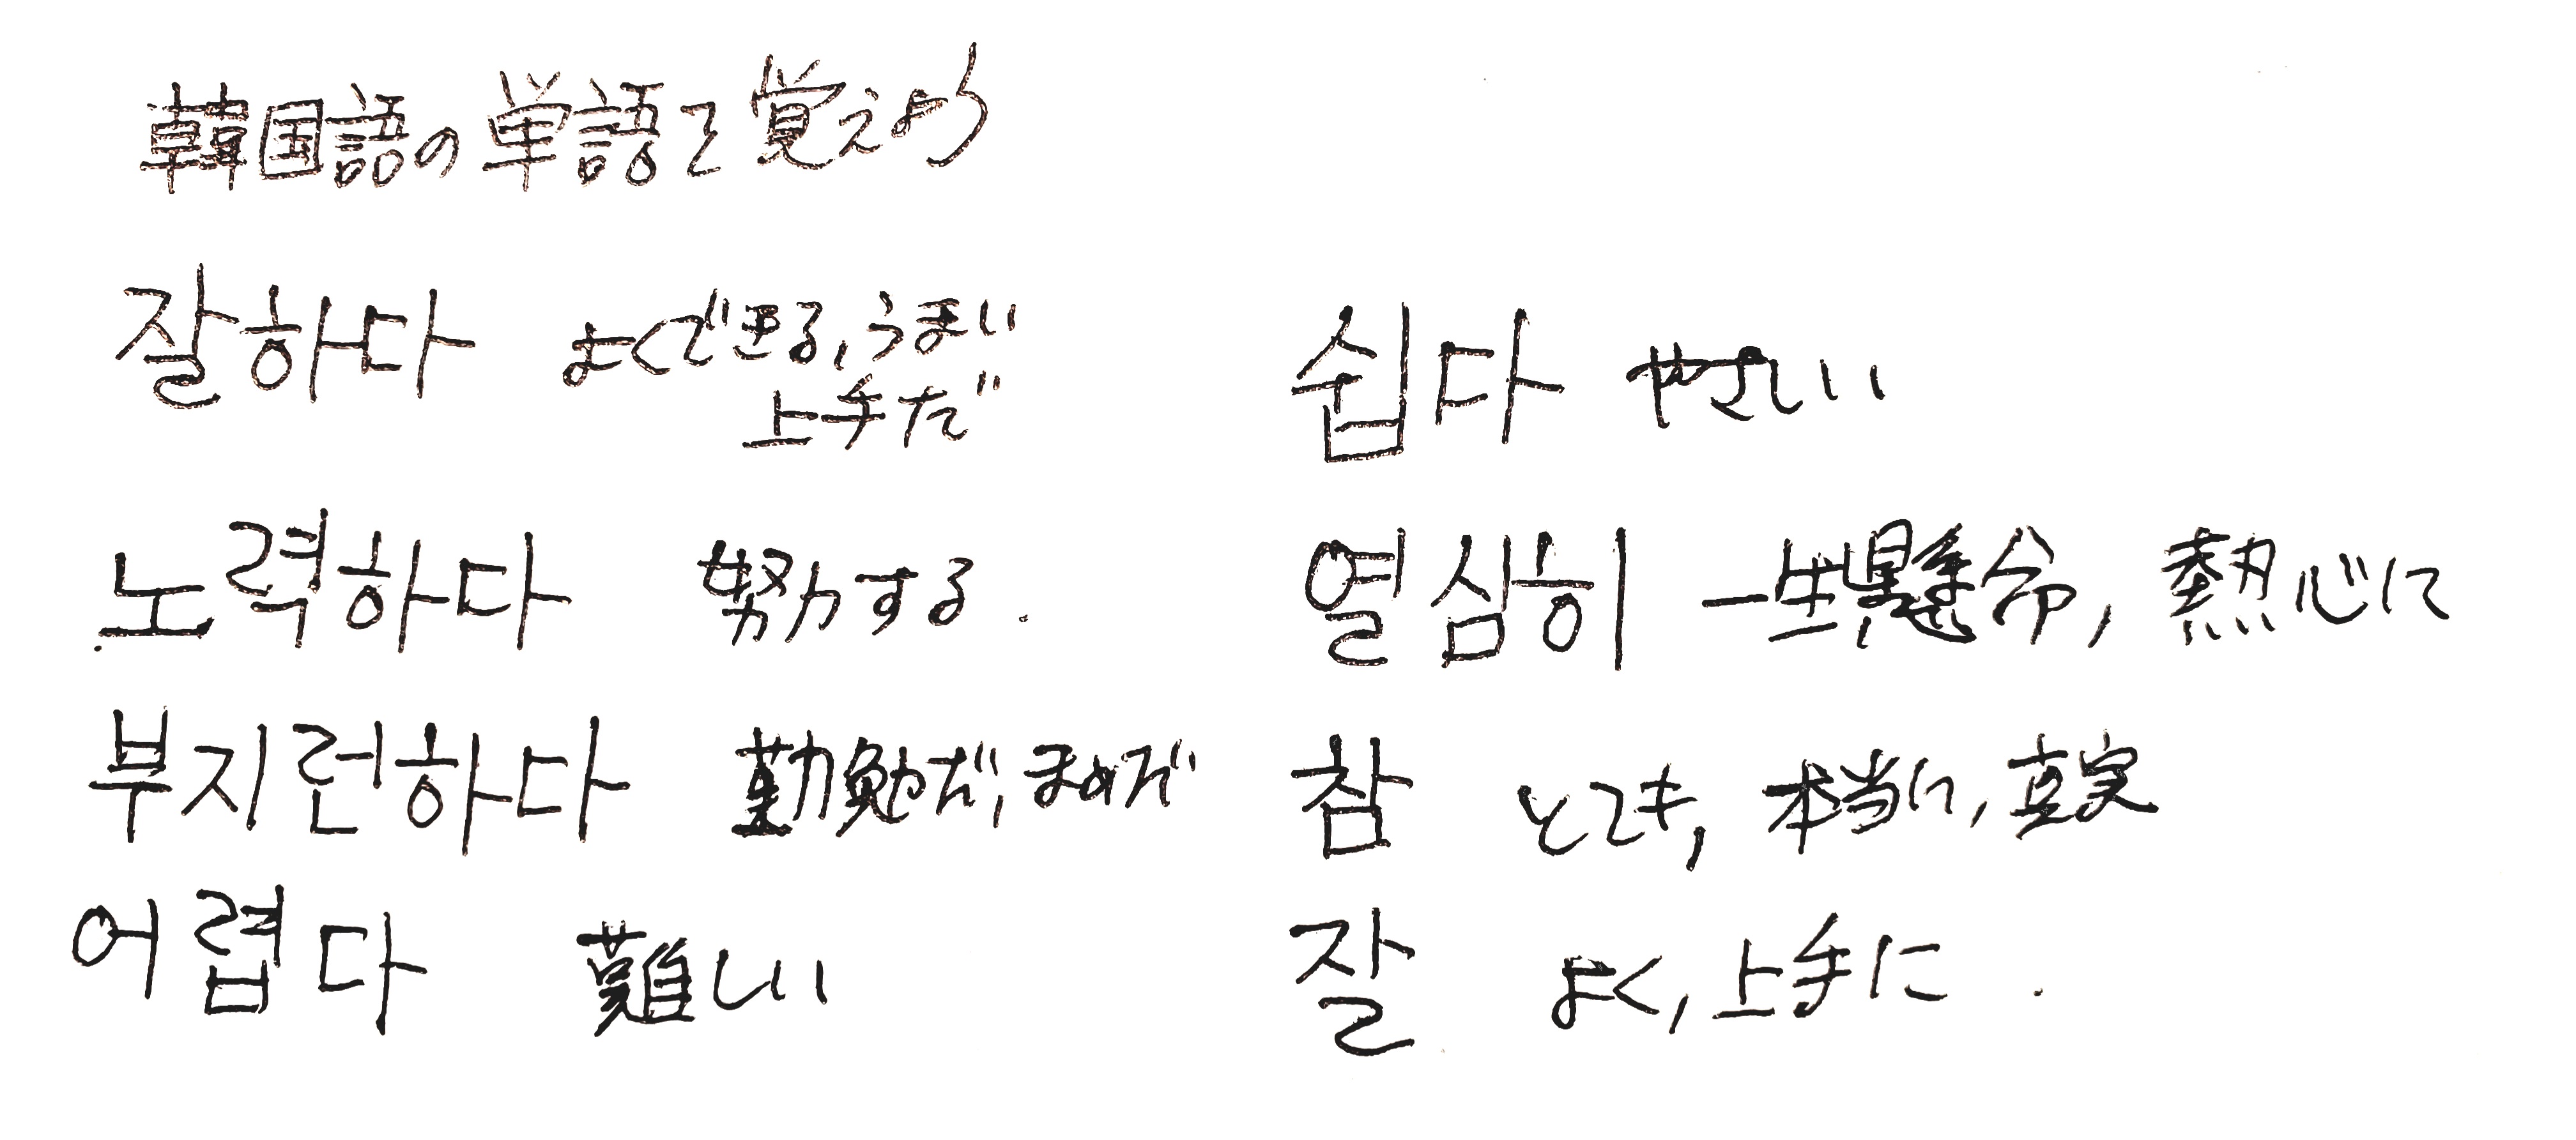 韓国語の単語を覚えよう
잘하다 よくできる,うまい
上手だ
노력하다 努力する.
부지런하다 勤勉だ,まめだ
어렵다 難しい
쉽다 やさしい
열심히 一生懸命,熱心に
참 とても,本当に,真実
잘 よく,上手に.